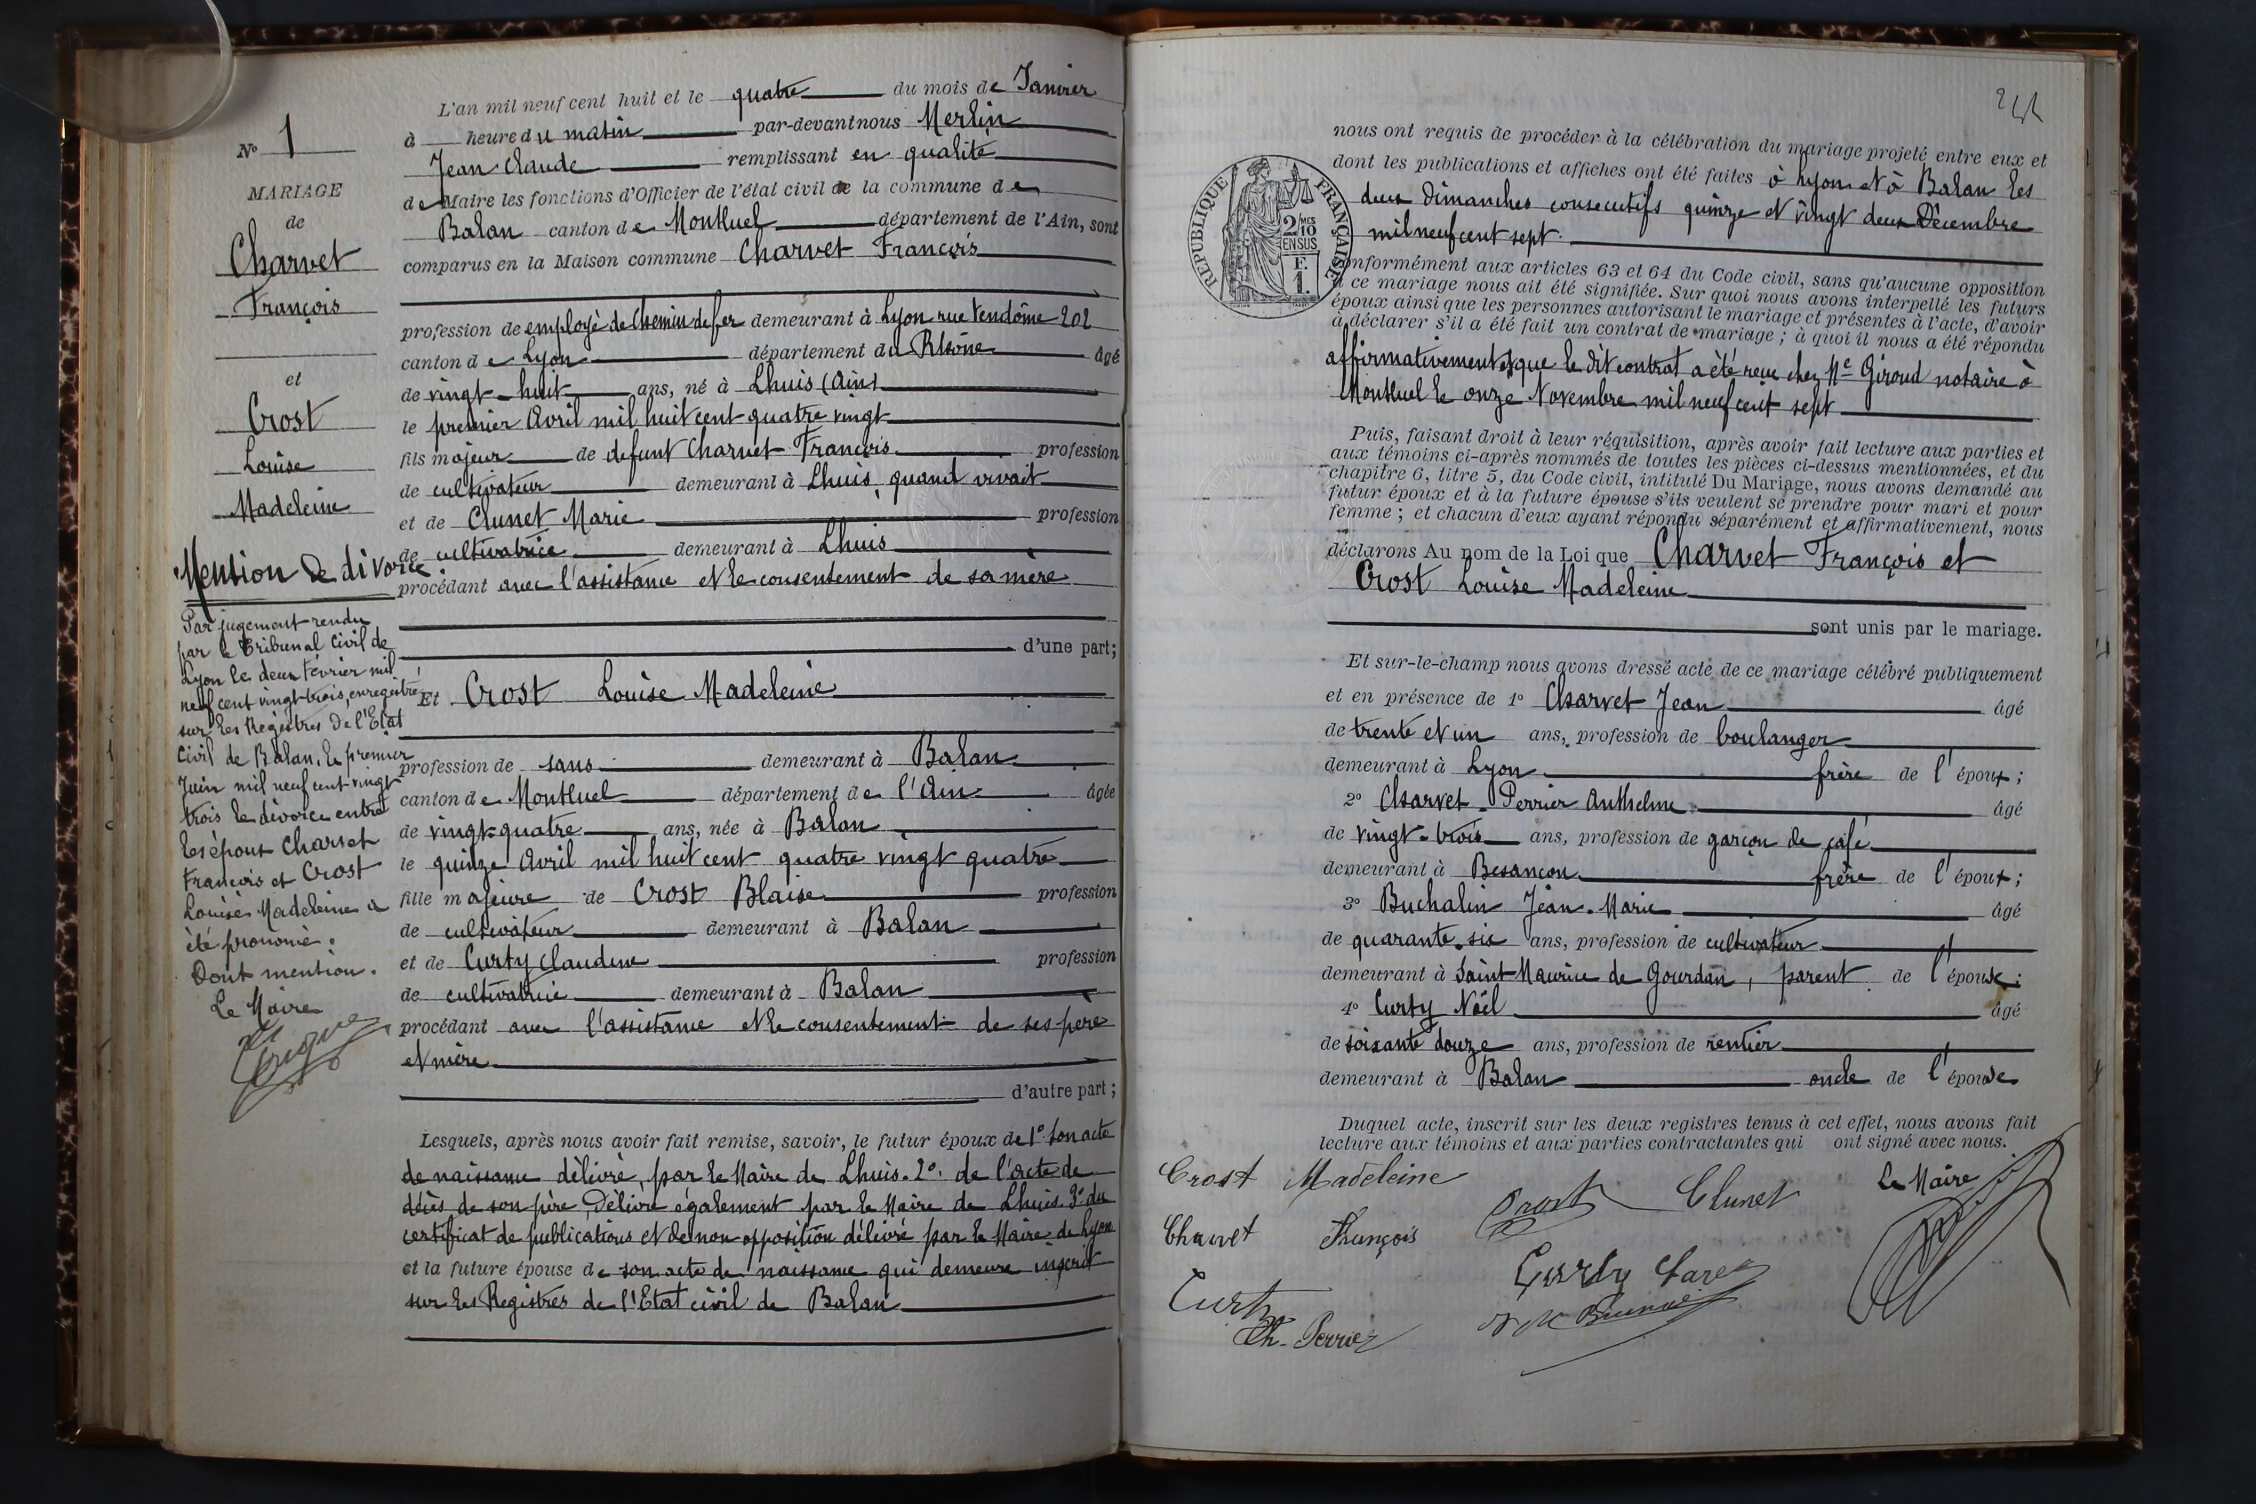 N° 1
MARIAGE
de
Charvet
François
et
Crost
Louise
Madeleine
Mention de divorce
Par jugement rendu
par le Tribunal Civil de
Lyon le deux Février mil
neuf cent vingt-trois, enregistré
sur les Registres de l'Etat
Civil de Balan, le premier
Juin mil neuf cent vingt
trois le divorce entre
les époux Charvet
François et Crost
Louise Madeleine a
été prononcé.
Dont mention.
Le Maire
L'an mil neuf cent huit et le quatre du mois de Janvier
à heure du matin par-devant nous Merlin
Jean Claude remplissant en qualité
de Maire les fonctions d'Officier de l'état civil de la commune de
Balan canton de Montluel département de l'Ain, sont
comparus en la Maison commune Charvet François
profession de employé de Chemin de fer demeurant à Lyon rue Vendôme 202
canton de Lyon département du Rhône âgé
de vingt-huit ans, né à Lhuis (Ain)
le premier Avril mil huit cent quatre vingt
fils majeur de defunt Charvet François profession
de cultivateur demeurant à Lhuis, quand vivait
et de Clunet Marie profession
de cultivatrice demeurant à Lhuis
procédant avec l'assistance et le consentement de sa mère
d'une part;
Et Crost Louise Madeleine
profession de sans demeurant à Balan
canton de Montluel département de l'Ain âgée
de vingt-quatre ans, née à Balan
le quinze Avril mil huit cent quatre vingt quatre
fille majeure de Crost Blaise profession
de cultivateur demeurant à Balan
et de Curty Claudine profession
de cultivatrice demeurant à Balan
procédant avec l'assistance et le consentement de ses père
et mère
d'autre part;
Lesquels, après nous avoir fait remise, savoir, le futur époux de 1° son acte
de naissance délivré, par le Maire de Lhuis. 2° de l'acte de
décès de son père Délivré également par le Maire de Lhuis 3° du
certificat de publications et de non opposition délivré par le Maire de Lyon
et la future épouse de son acte de naissance qui demeure inscrit
sur les Registres de l'Etat civil de Balan
REPUBLIQUE FRANÇAISE
2/10
EN SUS
F.
1.
nous ont requis de procéder à la célébration du mariage projeté entre eux et
dont les publications et affiches ont été faites à Lyon et à Balan les
deux Dimanches consecutifs quinze et vingt deux Décembre
mil neuf cent sept.
conformément aux articles 63 et 64 du Code civil, sans qu'aucune opposition
à ce mariage nous ait été signifiée. Sur quoi nous avons interpellé les futurs
époux ainsi que les personnes autorisant le mariage et présentes à l'acte, d'avoir
à déclarer s'il a été fait un contrat de mariage; à quoi il nous a été répondu
affirmativement et que le dit contrat a été reçu chez Me Giroud notaire à
Montluel le onze Novembre mil neuf cent sept
Puis, faisant droit à leur réquisition, après avoir fait lecture aux parties et
aux témoins ci-après nommés de toutes les pièces ci-dessus mentionnées, et du
chapitre 6, titre 5, du Code civil, intitulé Du Mariage, nous avons demandé au
futur époux et à la future épouse s'ils veulent se prendre pour mari et pour
femme; et chacun d'eux ayant répondu séparément et affirmativement, nous
déclarons Au nom de la Loi que Charvet François et
Crost Louise Madeleine
sont unis par le mariage.
Et sur-le-champ nous avons dressé acte de ce mariage célébré publiquement
et en présence de 1° Charvet Jean âgé
de trente et un ans, profession de boulanger
demeurant à Lyon frère de l'époux;
2° Charvet-Perrier Anthelme âgé
de vingt-trois ans, profession de garçon de café
demeurant à Besançon frère de l'époux;
3° Buchalin Jean-Marie âgé
de quarante-six ans, profession de cultivateur
demeurant à Saint-Maurice de Gourdan, parent de l'épouse;
4° Curty Noël âgé
de soixante douze ans, profession de rentier
demeurant à Balan oncle de l'épouse
Duquel acte, inscrit sur les deux registres tenus à cet effet, nous avons fait
lecture aux témoins et aux parties contractantes qui ont signé avec nous.
Crost Madeleine
Crost Clunet
Le Maire
Charvet François
Curty
Curty
Ch. Perrier